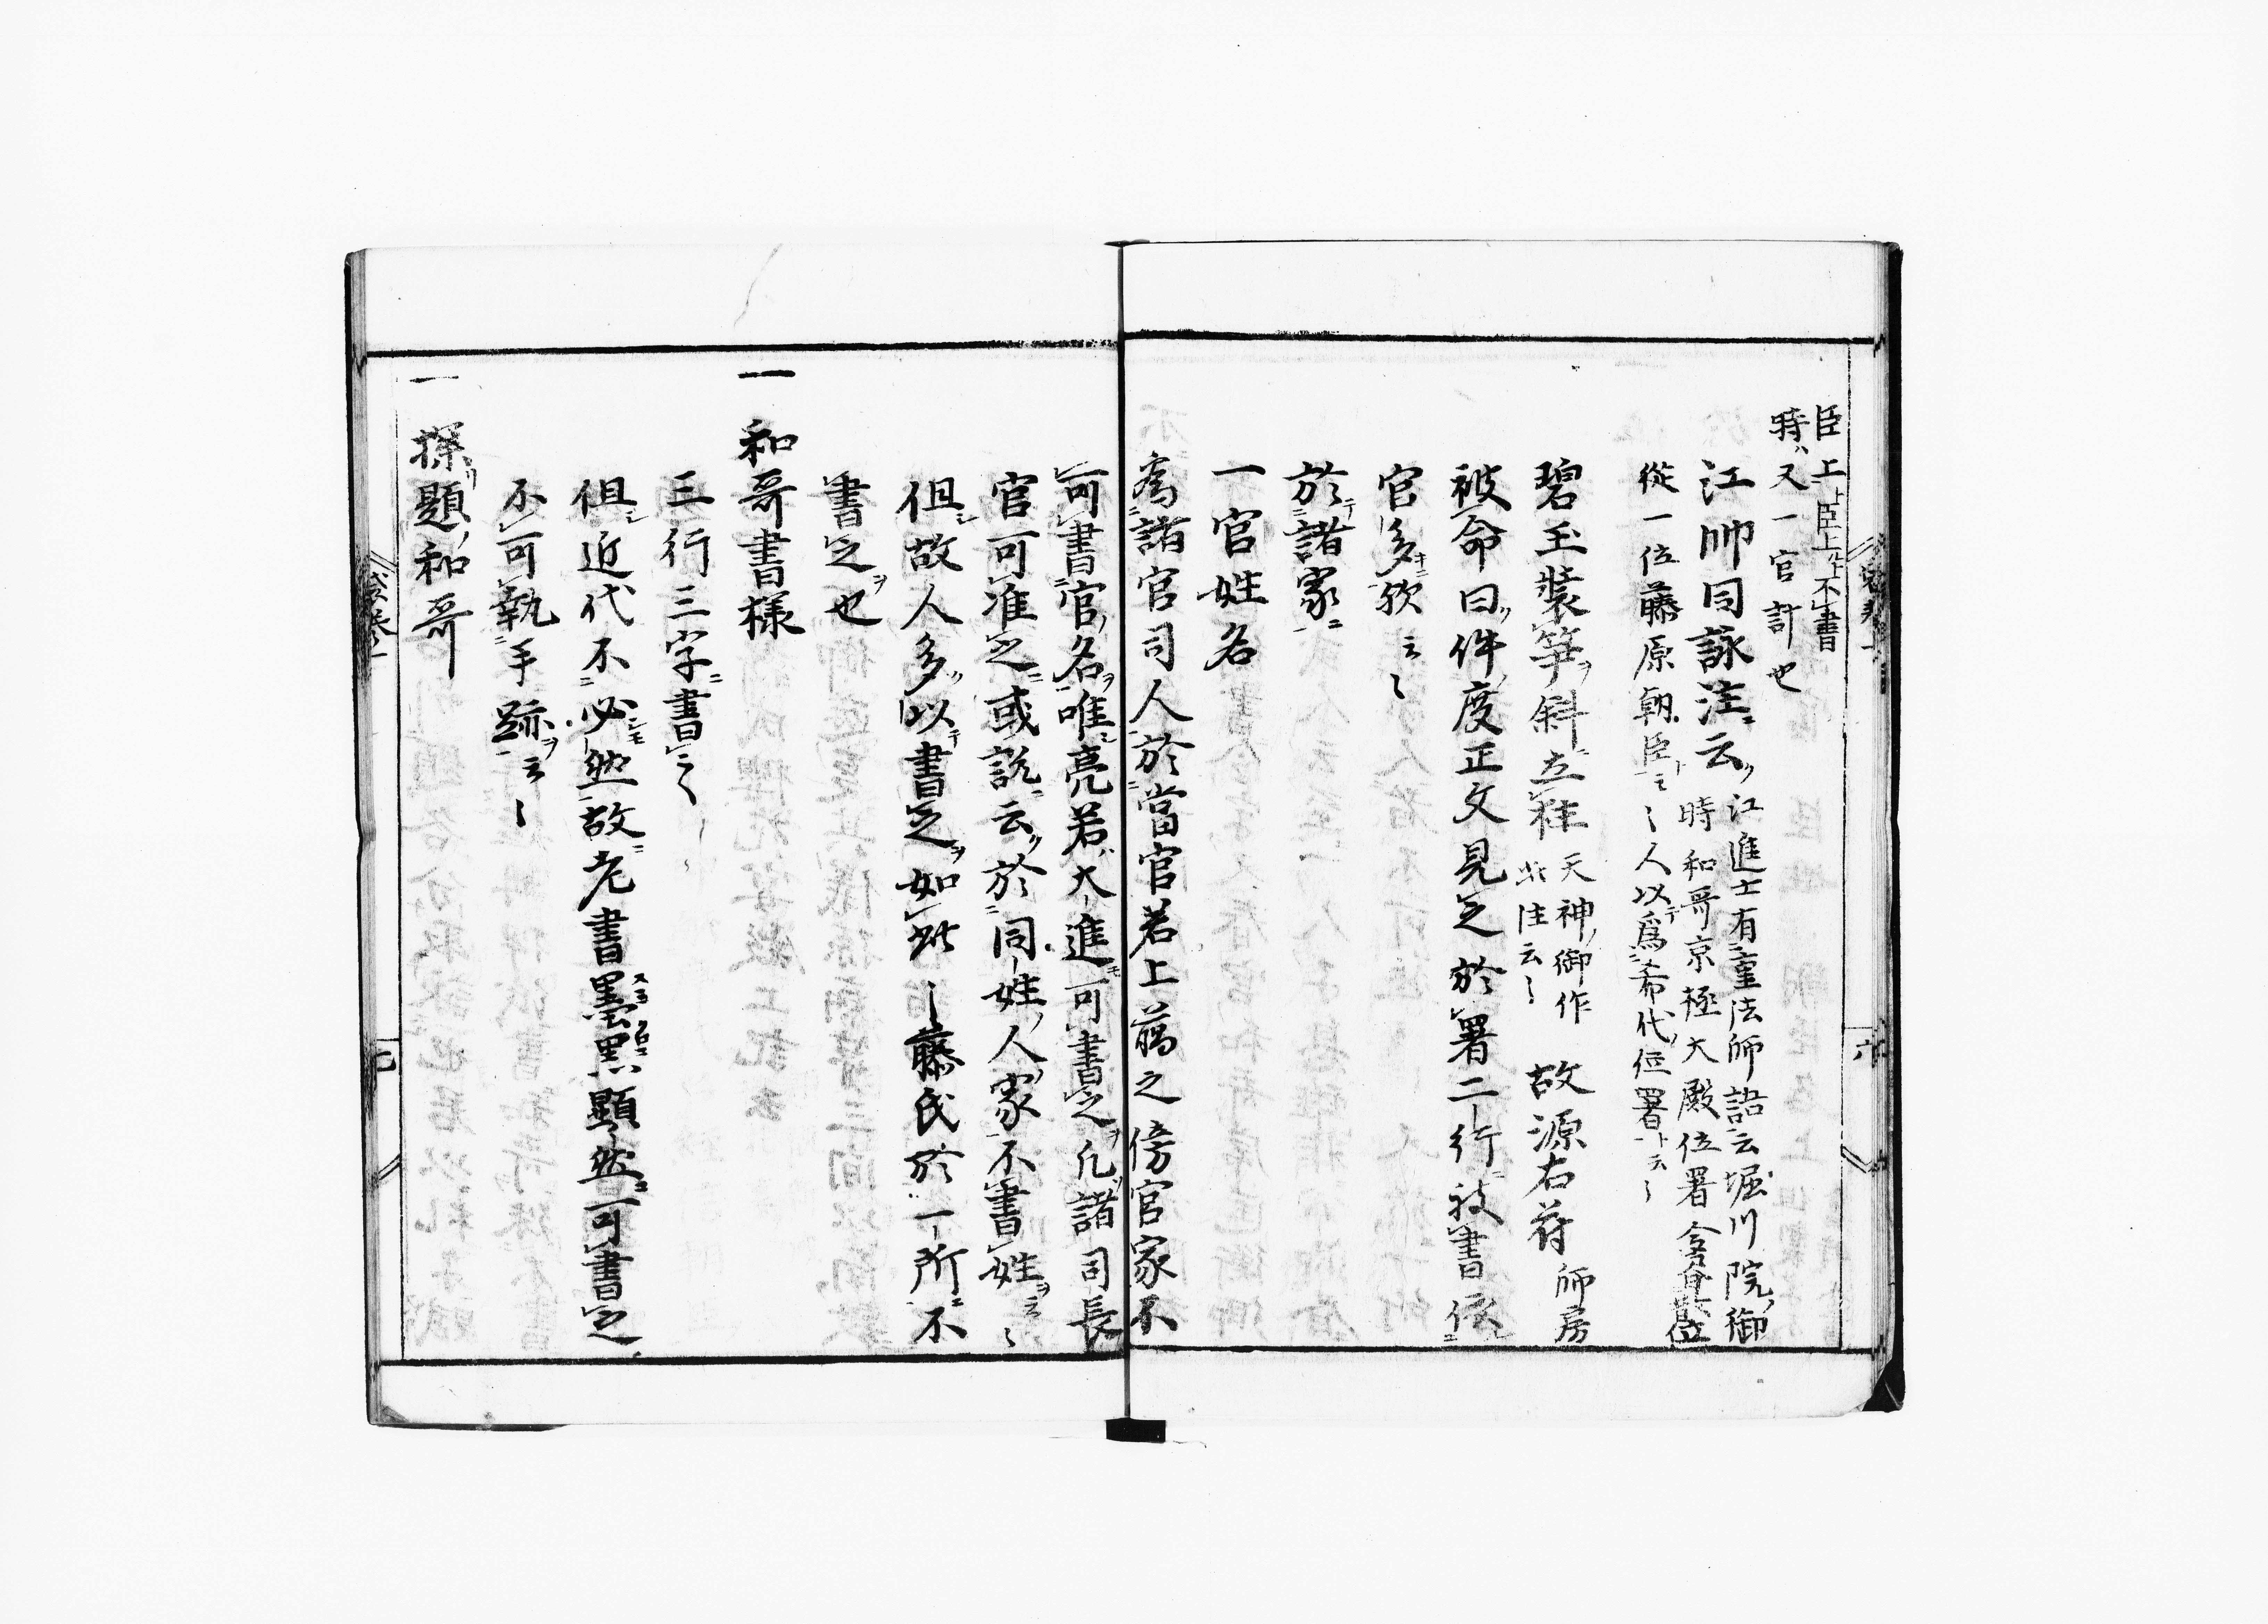 臣上ト臣上ト不書
時ハ又一官計也
江帥同詠注云江進士有重法師語云堀川院御
時和哥京極大殿位署
従一位藤原朝臣云〻人以為希代位署ト云〻
碧玉装筝斜立柱天神御作
此注云〻
故源右府師房
被命曰件度正文見之於署二行被書依
官多歟云〻
於諸家
一官姓名
為諸官司人於當官若上﨟之傍官家不
可書官名唯亮若大進可書之凡諸司長
官可准之或説云於同姓人家不書姓云〻
但故人多以書之如此〻藤氏於一所不
書之也
一和哥書様
三行三字書云〻
但近代不必然故老書墨黒顕然可書之
不可執手跡云〻
一探題和哥